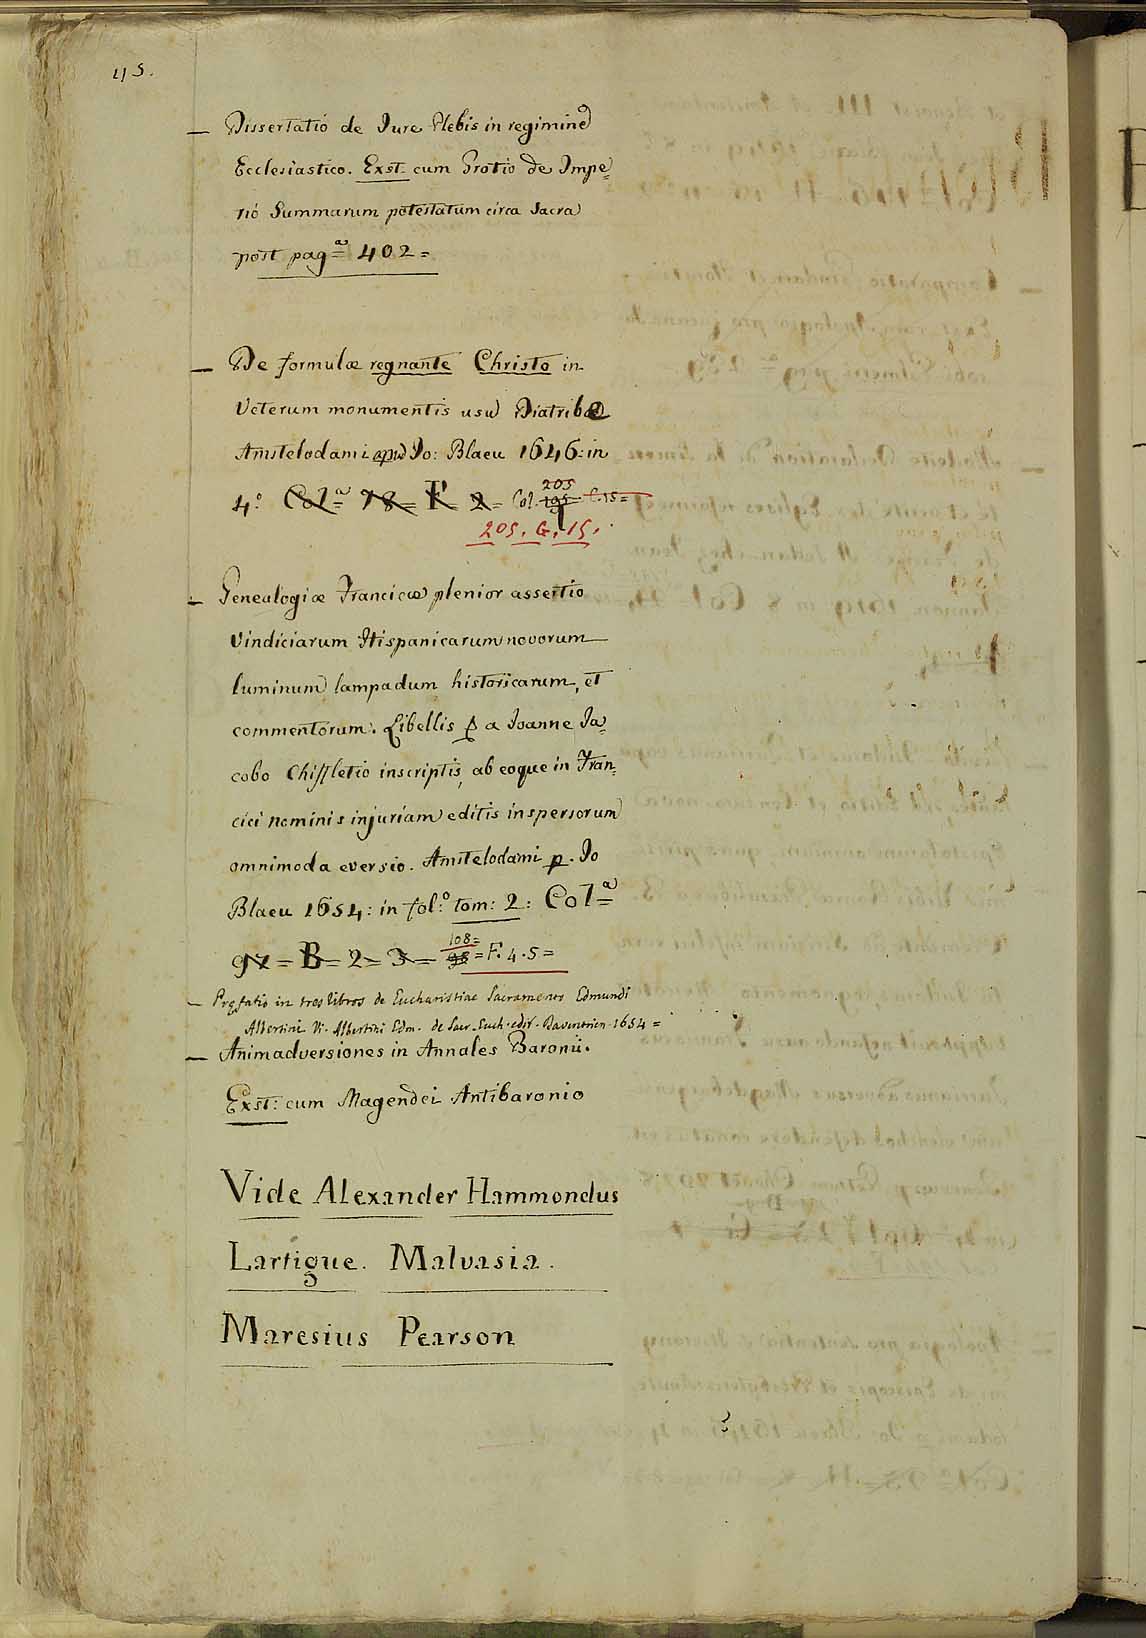 45.
— Dissertatio de Jure Plebis in regimine
Ecclesiastico. Exst: cum Grotio de Impe=
rio Summarum potestatum circa Sacra
post pag.ª 402=
— De formulæ regnante Christo in
Veterum monumentis usu Diatribæ
Amstelodami apud Jo: Blaeu 1646: in
4.º Col.ª 78 = F = 2 = Col. 195 205 C.15=
205. G. 15.
— Genealogiæ Francicæ plenior assertio
Vindiciarum Hispanicarum novorum
luminum lampadum historicarum, et
commentorum. Libellis p a Joanne Ja=
cobo Chiffletio inscriptis, ab eoque in Fran=
cici nominis injuriam editis inspersorum
omnimoda eversio. Amstelodami p. Jo
Blaeu 1654: in fol.º tom: 2: Col.ª
97 = B = 2 = 3 = 98 108= = F. 4. 5=
— Præfatio in tres libros de Eucharistiae Sacramento Edmundi
Albertini V. Albertini Edm. de Sacr. Euch. edit. Daventrien. 1654=
— Animadversiones in Annales Baronii.
Exst: cum Magendei Antibaronio
Vide Alexander Hammondus
Lartigue. Malvasia.
Maresius Pearson